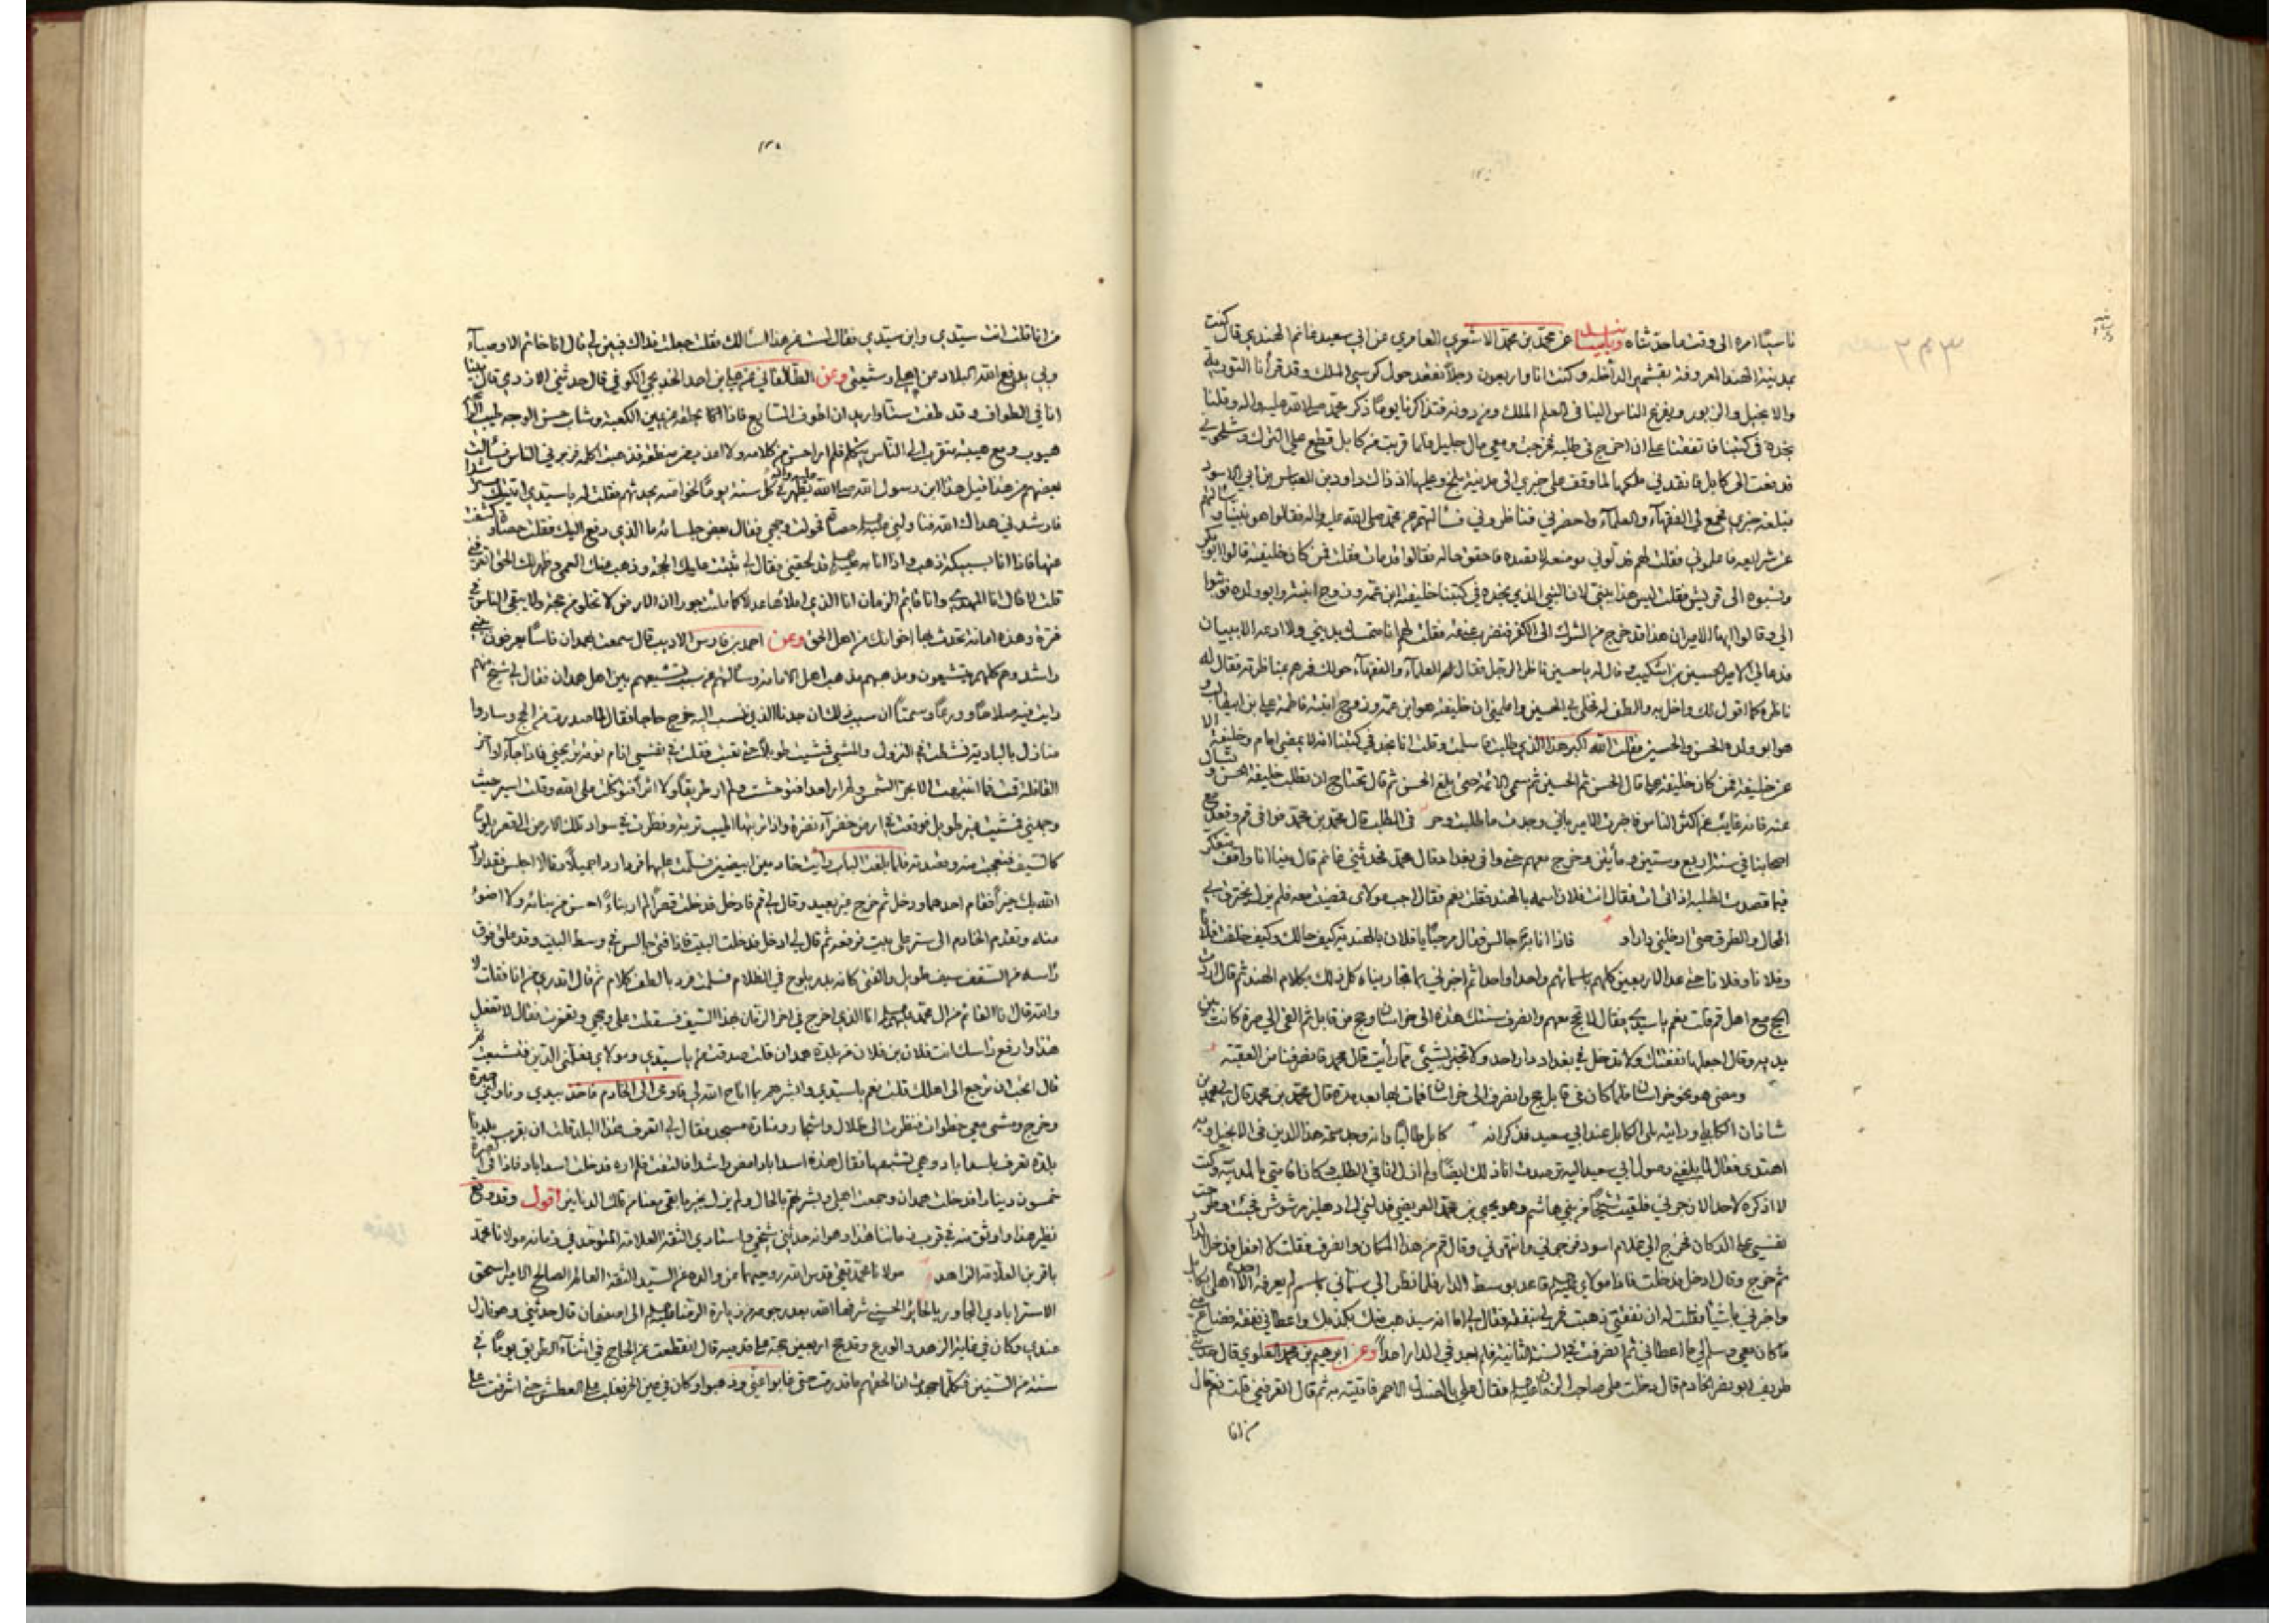 ناسيًا امره الى وقت ما حدثناه وباسناده عن محمد بن محمد الاشعري العامري عن ابي سعيد غانم الهندي قال كنت
بمدينة الهند المعروفة بقشمير الداخلة وكنت انا واربعون رجلا نقعد حول كرسي الملك وقد قرأنا التورية
والانجيل والزبور ويفزع الناس الينا في العلم الملك ومن دونه فتذاكرنا يوما ذكر محمد صلى الله عليه واله وقلنا
نجده في كتبنا فاتفقنا على ان اخرج في طلبه فخرجت ومعي مال جليل فلما قربت من كابل قطع علي الترك وشلحوني
فدفعت الى كابل فانفذني ملكها لما وقف على خبري الى مدينة بلخ وعليها اذ ذاك داود بن العباس بن ابي الاسود
فبلغه خبري فجمع لي الفقهاء والعلماء واحضرني فناظروني فسألتهم عن محمد صلى الله عليه واله فقالوا هو نبينا
عن شرايعه فاعلموني فقلت لهم فدلوني موضعه لاقصده فاحقق حاله فقالوا قد مات فقلت فمن كان خليفته قالوا ابو بكر
ونسبوه الى قريش فقلت ليس هذا بنبي لان النبي الذي نجده في كتبنا خليفته ابن عمه وزوج ابنته وابو ولده فوثبوا
الي وقالوا ايها الامير ان هذا قد خرج من الشرك الى الكفر فتضرب عنقه فقلت لهم انا متمسك بديني ولا ادعه الا ببيان
فدعا لي الامير الحسين بن اشكيب وقال له يا حسين ناظر الرجل فقال له العلماء والفقهاء حولك فمرهم بمناظرته فقال له
ناظره كما اقول لك واخل به والطف له فخلى بي الحسين واعلمني ان خليفته هو ابن عمه وزوج ابنته فاطمة علي بن ابيطالب و
هو ابو ولده الحسن والحسين فقلت الله اكبر هذا الذي طلبت فاسلمت وقلت انا نجد في كتبنا انه لا يمضي امام وخليفة الا
عن خليفة فمن كان خليفته عليا قال الحسن ثم الحسين ثم سمى الائمة حتى بلغ الحسن ثم قال تحتاج ان تطلب خليفة الحسن وتسأل
عنه فانه غايب عن اكثر الناس في الطلب قال محمد بن محمد فوافى قم وقعد مع
اصحابنا في سنة اربع وستين ومأتين وخرج معهم حتى وافى بغداد قال محمد فحدثني غانم قال بينا انا واقف متفكر
فيما قصدت لطلبه اذ اتى ات فقال انت فلان اسمه بالهند فقلت نعم فقال اجب مولاك فمضيت معه فلم يزل يخترق بي
المحال والطرق حتى ادخلني دارا و فاذا انا برجل جالس فقال مرحبًا يا فلان بالهندية كيف حالك وكيف خلفت فلانا
وفلانا وفلانا حتى عد الاربعين كلهم باسمائهم واحدا واحدا ثم اخبرني بما تجاريناه كل ذلك بكلام الهند ثم قال اردت
الحج مع اهل قم قلت نعم يا سيدي فقال لا تحج معهم وانصرف سنتك هذه الى خراسان وحج من قابل ثم القى الي صرة كانت بين
يديه وقال اجعلها نفقتك ولا تدخل في بغداد دار احد ولا تخبر بشيء مما رأيت قال محمد فانصرفنا من العقبة
ومضى هو نحو خراسان فلما كان في قابل حج وانصرف الى خراسان فمات بها بعد مدة قال محمد بن محمد قال محمد بن
شاذان الكابلي ورأيته الكابل عند ابي سعيد فذكر انه كابل طالبًا وانه وجد صحة هذا الدين في الانجيل وبه
اهتدى فقال لما بلغني وصول ابي سعيد اليه ترصدت اذا ذلك ايضًا ولم ازل انا في الطلب وكان اقامتي بالمدينة وكنت
لا اذكره لاحد الا زجرني فلقيت شيخًا من بني هاشم وهو يحيى بن محمد العريضي فدلني الى دهليز مرشوش فجئت وطرحت
نفسي على الدكان فخرج الي غلام اسود فزجرني وانتهرني وقال قم من هذا المكان وانصرف فقلت لا افعل فدخل الدار
ثم خرج وقال ادخل فدخلت فاذا مولاي قاعد بوسط الدار فلما نظر الي سماني باسم لم يعرفه الا اهلي بكابل
واخبرني باشيا فقلت له ان نفقتي ذهبت فمر لي بنفقة فقال لي اما انه ستذهب منك بكذبك واعطاني نفقة فضاع
ما كان معي وسلم لي ما اعطاني ثم انصرفت في السنة الثانية فلم اجد في الدار احداً وعن ابرهيم بن محمد العلوي قال
طريف ابو نصر الخادم قال دخلت على صاحب الزمان فقال علي بالصندل الاحمر فاتيته به ثم قال اتعرفني قلت نعم قال
من انا
من انا فقلت انت سيدي وابن سيدي فقال لست عن هذا اسالك فقلت جعلت فداك فبين لي قال انا خاتم الاوصياء
وبي يدفع الله البلاء من اهلي وشيعتي وعن الطالقاني عن علي بن احمد الخديجي الكوفي قال حدثني الازدي قال بينا
انا في الطواف وقد طفت ستا واريد ان اطوف السابع فاذا انا بحلقة عن يمين الكعبة وشاب حسن الوجه طيب الرائحة
هيوب ومع هيبته متقرب الى الناس يتكلم فلم ار احسن من كلامه ولا اعذب من منطقه فذهبت اكلمه فزبرني الناس فسألت
بعضهم من هذا فقيل هذا ابن رسول الله صلى الله يظهر في كل سنة يوما لخواصه يحدثهم فقلت له يا سيدي اتيتك مسترشدا
فارشدني هداك الله فناولني حصاة فحولت وجهي فقال بعض جلسائه ما الذي دفع اليك فقلت حصاة وكشفت
عنها فاذا انا بسبيكة ذهب واذا انا به قد لحقني فقال لي ثبتت عليك الحجة وذهب عنك العمى وظهر لك الحق اتعرفني
قلت لا قال انا المهدي وانا قايم الزمان انا الذي املأها عدلا كما ملئت جورا ان الارض لا تخلو من حجة ولا يبقى الناس في
فترة وهذه امانة تحدث بها اخوانك من اهل الحق وعن احمد بن فارس الاديب قال سمعت بهمدان ناسًا يعرفون ببني
راشد وهم كلهم يتشيعون ومذهبهم مذهب اهل الامامة وسألتهم عن سبب تشيعهم بين اهل همدان فقال لي شيخ منهم
رايت فيه صلاحًا وورعًا وسمتًا ان سبب ذلك ان جدنا الذي ننسب اليه خرج حاجا فقال لما صدرت من الحج وساروا
منازل بالبادية فنشطت في النزول والمشي فمشيت طويلاً حتى تعبت فقلت في نفسي انام نومة تريحني فاذا جاء اواخر
القافلة قمت فما انتبهت الا بحر الشمس ولم ار احدا فتوحشت ولم ار طريقًا ولا اثرا فتوكلت على الله وقلت اسير حيث
وجهني فمشيت غير طويل فوقعت في ارض خضراء نضرة واذا تربتها اطيب تربة ونظرت في سواد تلك الارض الى قصر يلوح
كالسيف فتعجبت منه وقصدته فلما بلغت الباب رأيت خادمين ابيضين فسلمت عليهما فردا ردا جميلاً وقالا اجلس فقد اراد
الله بك خيراً فقام احدهما ودخل ثم خرج غير بعيد وقال لي قم فادخل فدخلت قصراً لم ار بناءً احسن من بنائه ولا اضوء
منه وتقدم الخادم الى ستر على بيت فرفعه ثم قال لي ادخل فدخلت البيت فاذا فتى جالس في وسط البيت وقد علق فوق
رأسه من السقف سيف طويل والفتى كانه بدر يلوح في الظلام فسلمت فرد بالطف كلام ثم قال اتدري من انا فقلت لا
والله قال انا القائم من ال محمد انا الذي اخرج في اخر الزمان بهذا السيف فسقطت على وجهي وتعفرت فقال لا تفعل
هذا وارفع رأسك انت فلان بن فلان من بلدة همدان قلت صدقت يا سيدي ومولاي
قال اتحب ان ترجع الى اهلك قلت نعم يا سيدي وابشرهم بما اتاح الله لي فاومى الى الخادم فاخذ بيدي وناولني صرة
وخرج ومشى معي خطوات فنظرت الى ظلال واشجار ومنارة مسجد فقال لي اتعرف هذا البلد قلت ان بقرب بلدنا
بلدة تعرف باسداباد وهي تشبهها فقال هذه اسداباد امض راشدا فالتفت فلم اره فدخلت اسداباد فاذا في الصرة
خمسون دينارا فدخلت همدان وجمعت اهلي وبشرتهم بالحال ولم نزل بخير ما بقي معنا من تلك الدنانير اقول وقد وقع
نظير هذا واوثق منه في قرب زماننا هذا وهو انه حدثني شيخي واستادي الثقة العلامة المتوحد في زمانه مولانا محمد
باقر بن العلامة الزاهد مولانا محمد تقي قدس الله روحيهما عن والده عن السيد الثقة العالم الصالح الامير اسحق
الاسترابادي المجاور بالحاير الحسيني شرفها الله بعد رجوعه من زيارة الرضا الى اصفهان قال حدثني وهو نازل
عندي وكان في غاية الزهد والورع وقد حج اربعين حجة على قدميه قال انقطعت عن الحاج في اثناء الطريق يومًا في
سنة من السنين فكلما اجهدت ان الحقهم ما قدرت حتى غابوا عني وذهبوا وكان في عين الحر فغلب علي العطش حتى اشرفت على